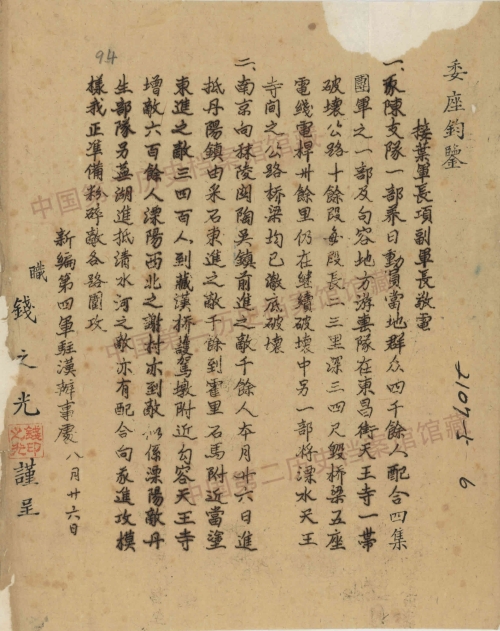 委座鈞鑒
接葉軍長項副軍長敬電
一、我陳支隊一部舉日動員當地群众四千餘人配合四集
團軍之一部及句容地方游擊隊在東昌街天王寺一帶
破壞公路十餘段每段長一二三里深三四尺毀桥梁五座
電綫電桿卅餘里仍在継續破壞中另一部將溧水天王
寺間之公路桥梁均已澈底破壞
二、南京向秣陵関陶吳鎮前進之敵千餘人本月廿六日進
抵丹陽鎮由采石東進之敵千餘到霍里石馬附近當塗
東進之敵三四百人到藏漢桥護駕墩附近句容天王寺
增敵六百餘人溧陽西北之謝村亦到敵似係溧陽敵丹
生部隊另益湖進抵清水河之敵亦有配合向我進攻模
樣我正準備粉碎敵各路圍攻
新編第四軍駐漢辦事處 八月廿六日
職 錢之光 謹呈
錢之光印
94
21074
6
中国第二历史档案馆馆藏
中国第二历史档案馆馆藏
中国第二历史档案馆馆藏